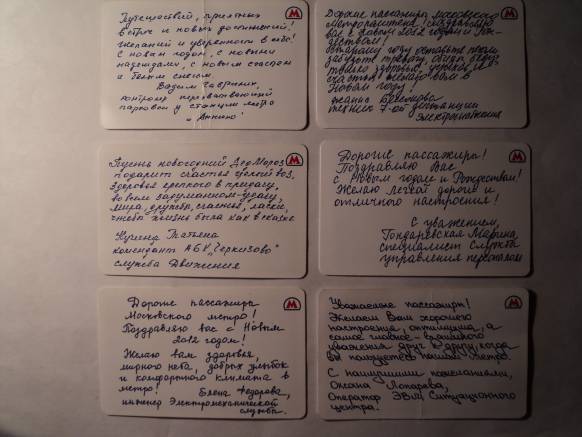 Путешествий, приятных
встреч и новых достижений!
Желаний и уверенности в себе!
С новым годом, с новыми
надеждами, с новым счастьем
и белым снегом.
Вадим Гаврилин,
контролер перехватывающей
парковки у станции метро
"Аннино"
Дорогие пассажиры Московского
метрополитена! Поздравляю
вас с Новым 2012 годом и Рож-
деством!
забудьте тревогу,
счастья желаю вам в
Новом году!
Жанна
техник 7-ой дистанции
электроснабжения
Пусть новогодний Дед Мороз
подарит счастья целый воз,
здоровья крепкого в придачу,
во всем задуманном удачу,
мира, дружбы, счастья, ласки,
чтобы жизнь была как в сказке
Татьяна
комендант АБК "Черкизово"
служба Движения
Дорогие пассажиры!
Поздравляю Вас
с Новым годом и Рождеством!
Желаю легкой дороги и
отличного настроения!
С уважением,
Гондаревская Марина,
специалист Службы
управления персоналом
Дорогие пассажиры
Московского метро!
Поздравляю вас с Новым
2012 годом!
Желаю вам здоровья,
мирного неба, добрых улыбок
и комфортного климата в
метро!
Елена Федорова,
инженер Электромеханической
службы.
Уважаемые пассажиры!
Желаем Вам хорошего
настроения, оптимизма, а
самое главное - взаимного
уважения друг к другу, когда
Вы пользуетесь нашим метро.
С наилучшими пожеланиями,
Оксана Лопарева,
Оператор ЭВМ, Ситуационного
центра.